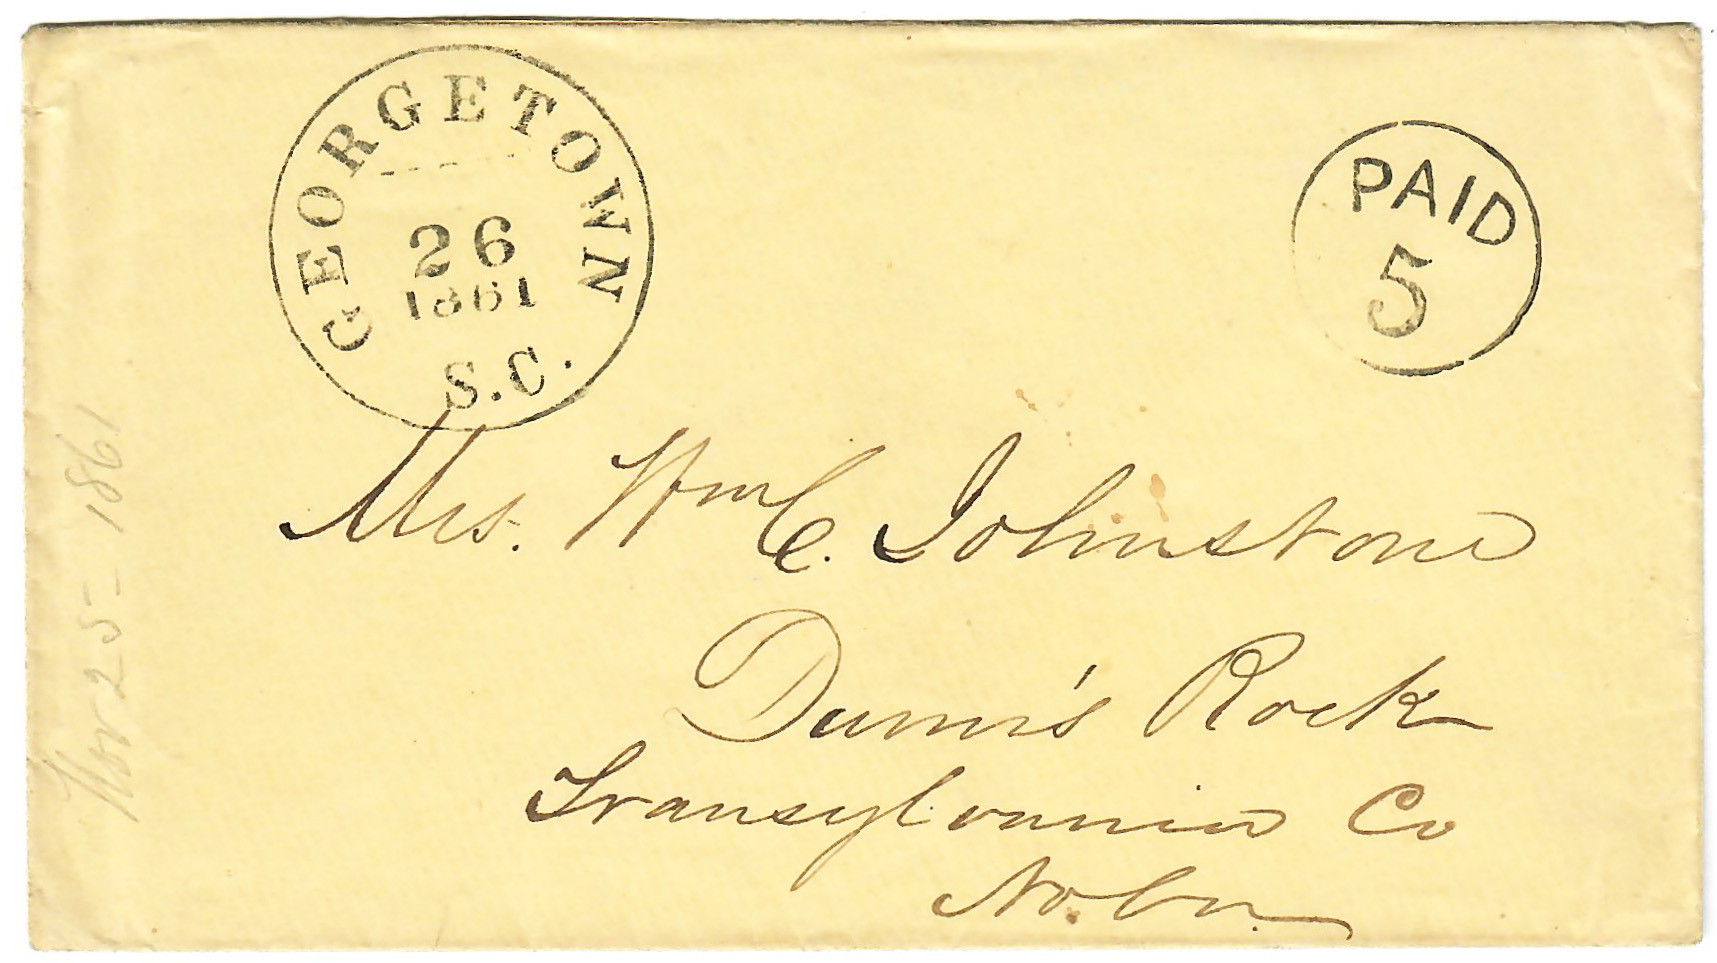 GEORGETOWN
26
1861
S.C.
PAID
5
Mrs. Wm C. Johnstone
Dunn's Rock
Transylvania Co
No. Ca.
Nov 25 - 1861